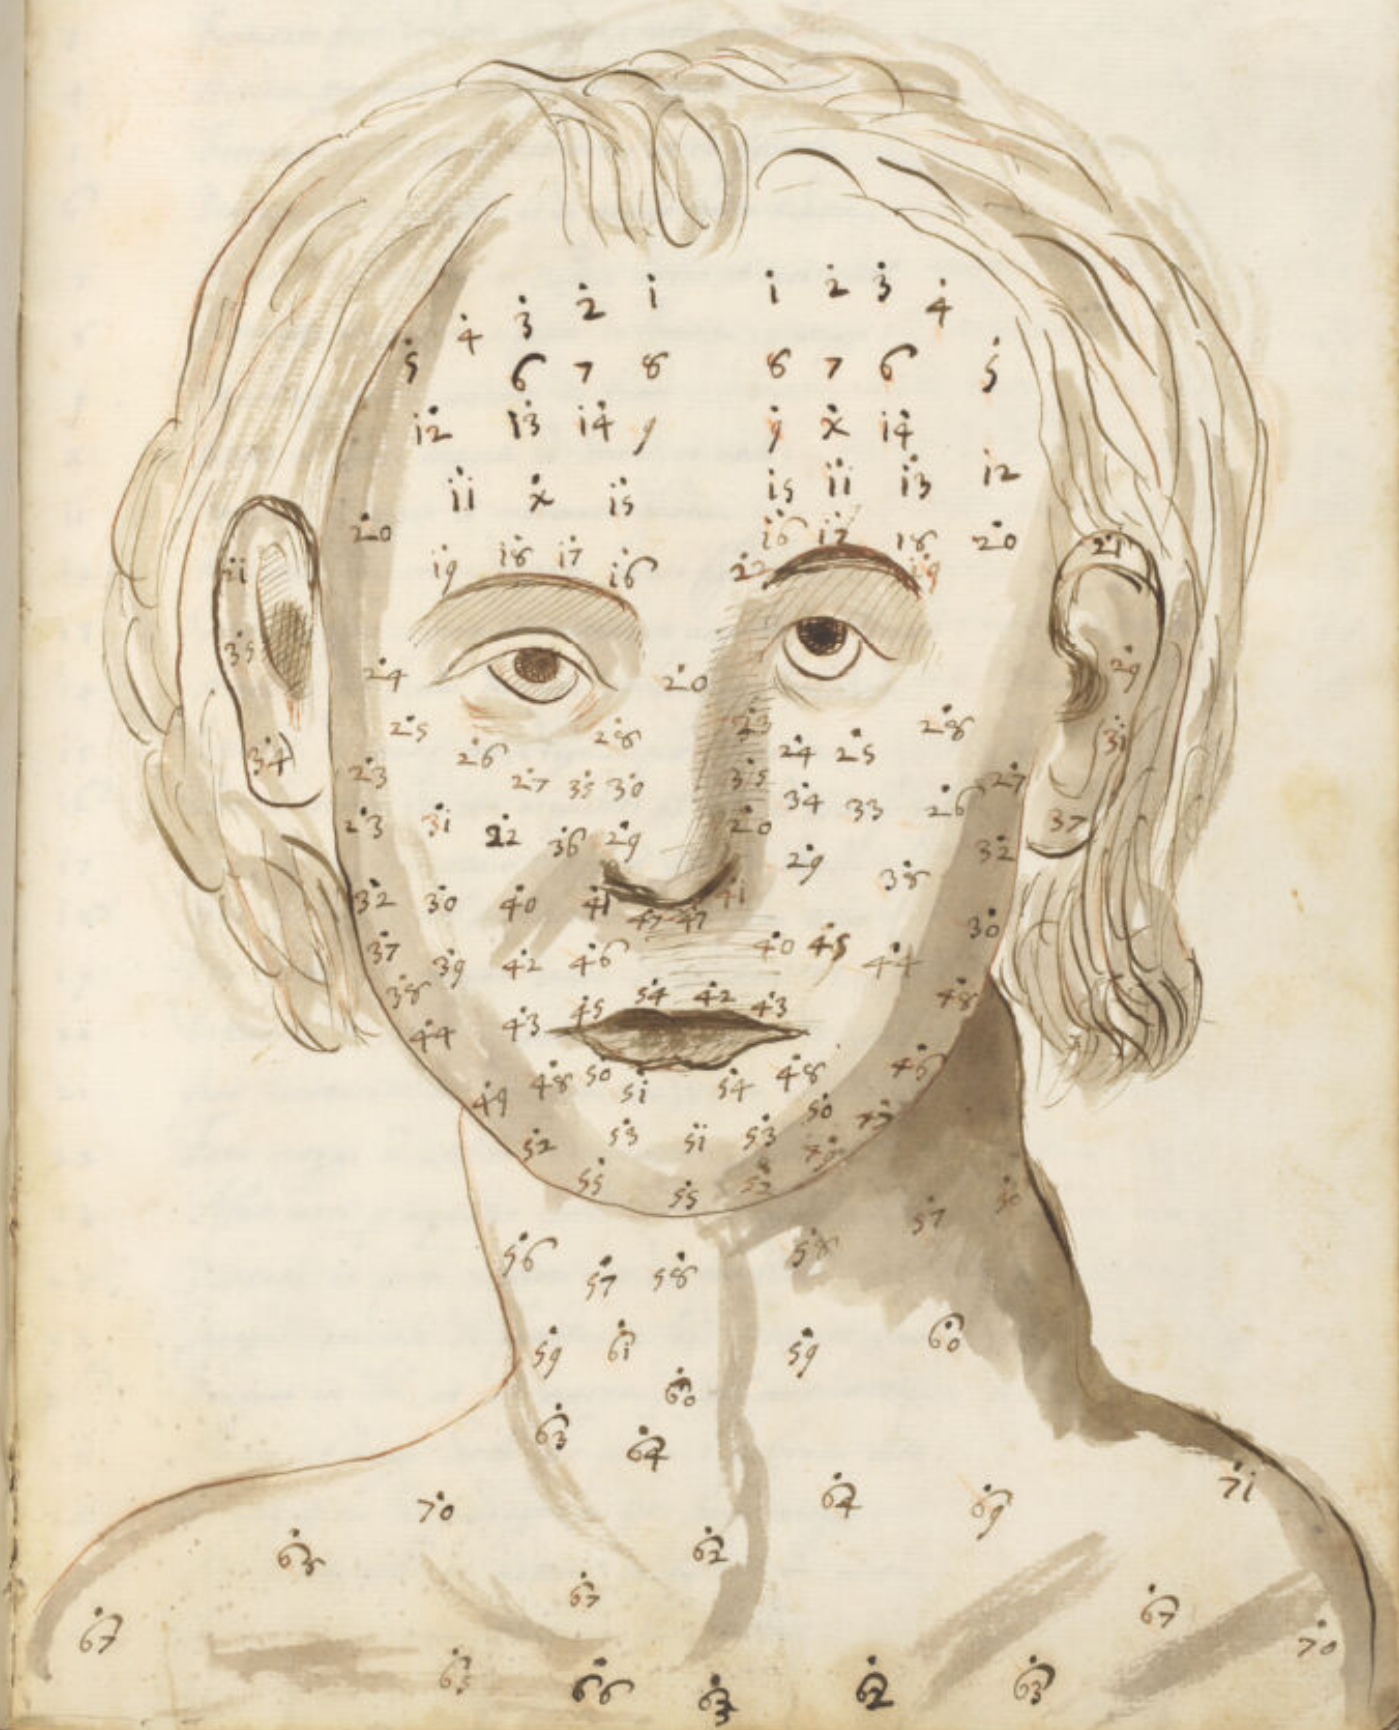 1 2 3 4
4 3 2 1
5 6 7 8 8 7 6 5
12 13 14 9 9 x 14
11 x 15 15 11 13 12
20 16 17 18 20 21
21 19 18 17 16 22 19
35 24 20 29
25 26 28 23 24 25 28 31
34 23 27 35 30 35 34 33 26 27
23 31 22 36 29 20 29 37
32 30 40 41 41 38 32
47 47 30
37 39 42 46 40 45 44
38 45 54 42 43 48
44 43
49 48 50 51 54 48 46
50
52 53 51 53
55 55 52 57
56 57 58 58
59 61 59 60
60
63 64
70 64 69 71
62
67 67
67 70
65 66 63 62 63